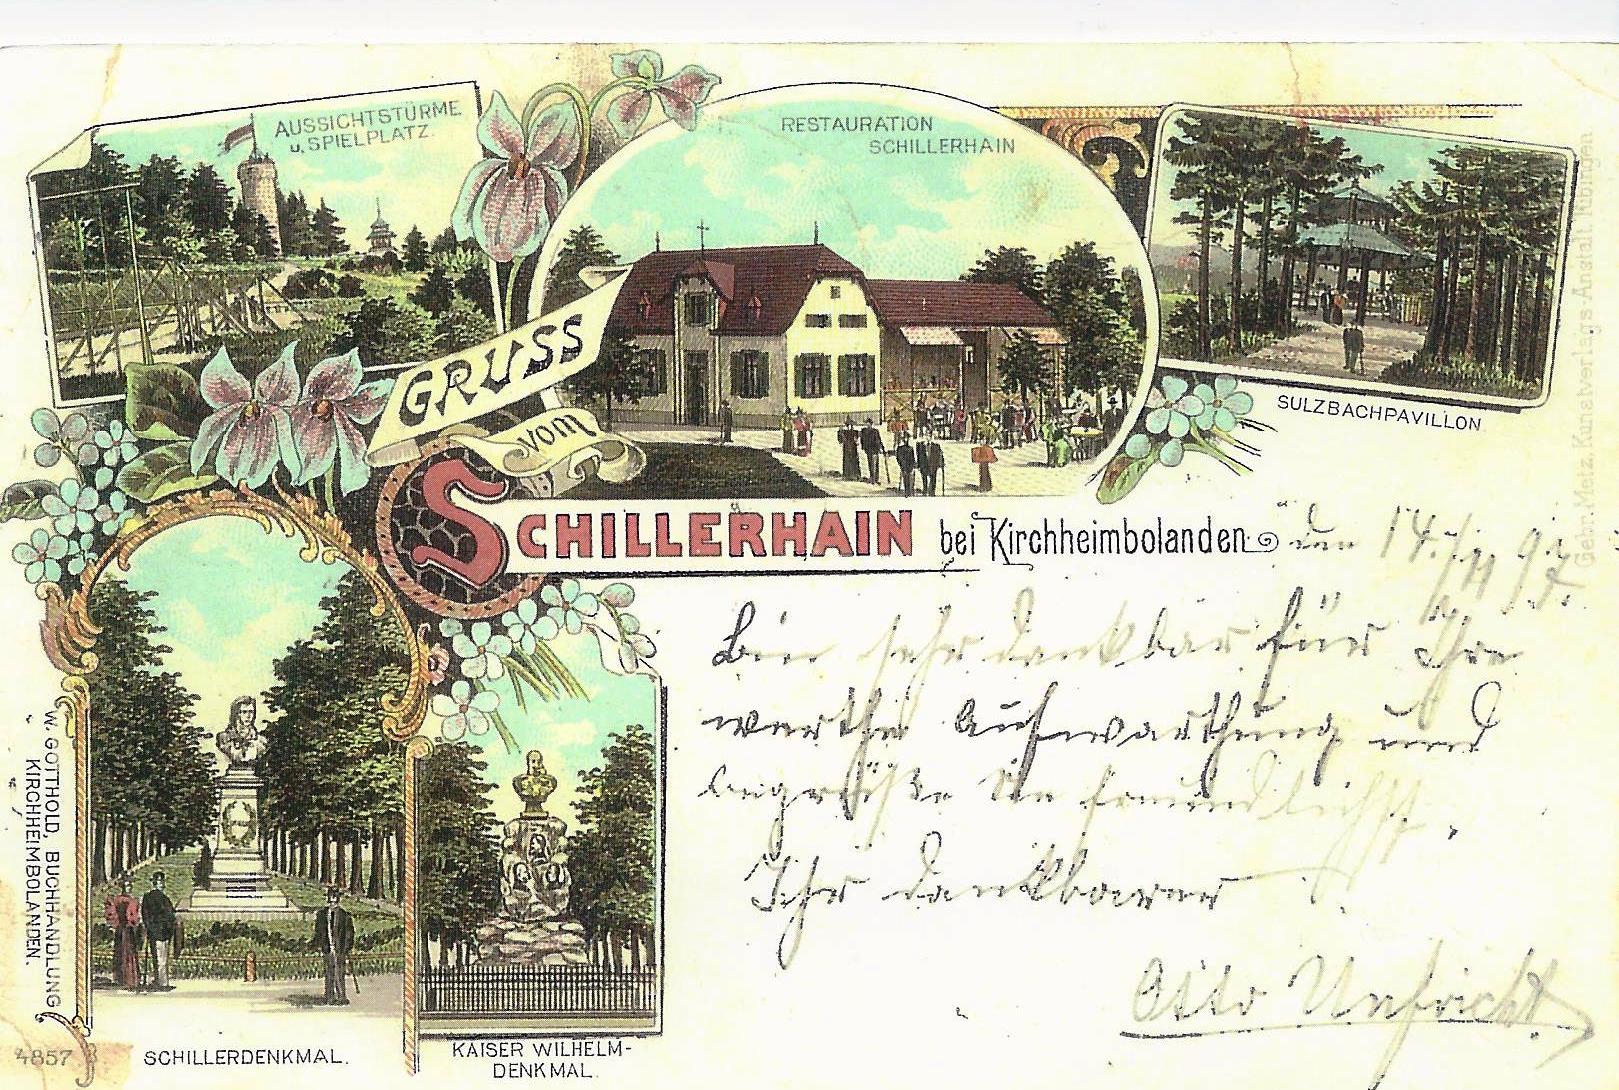 AUSSICHTSTÜRME
u. SPIELPLATZ.
RESTAURATION
SCHILLERHAIN
SULZBACHPAVILLON
GRUSS
vom
SCHILLERHAIN bei Kirchheimbolanden
den 14./11 97.
Bin sehr dankbar für Ihre
werthe Aufwarthung und
begrüße Sie freundlichst.
Ihr dankbarer
Otto
SCHILLERDENKMAL.
KAISER WILHELM-
DENKMAL.
W. GOTTHOLD, BUCHHANDLUNG
KIRCHHEIMBOLANDEN.
4857
Gebr. Metz, Kunstverlags-Anstalt Tübingen